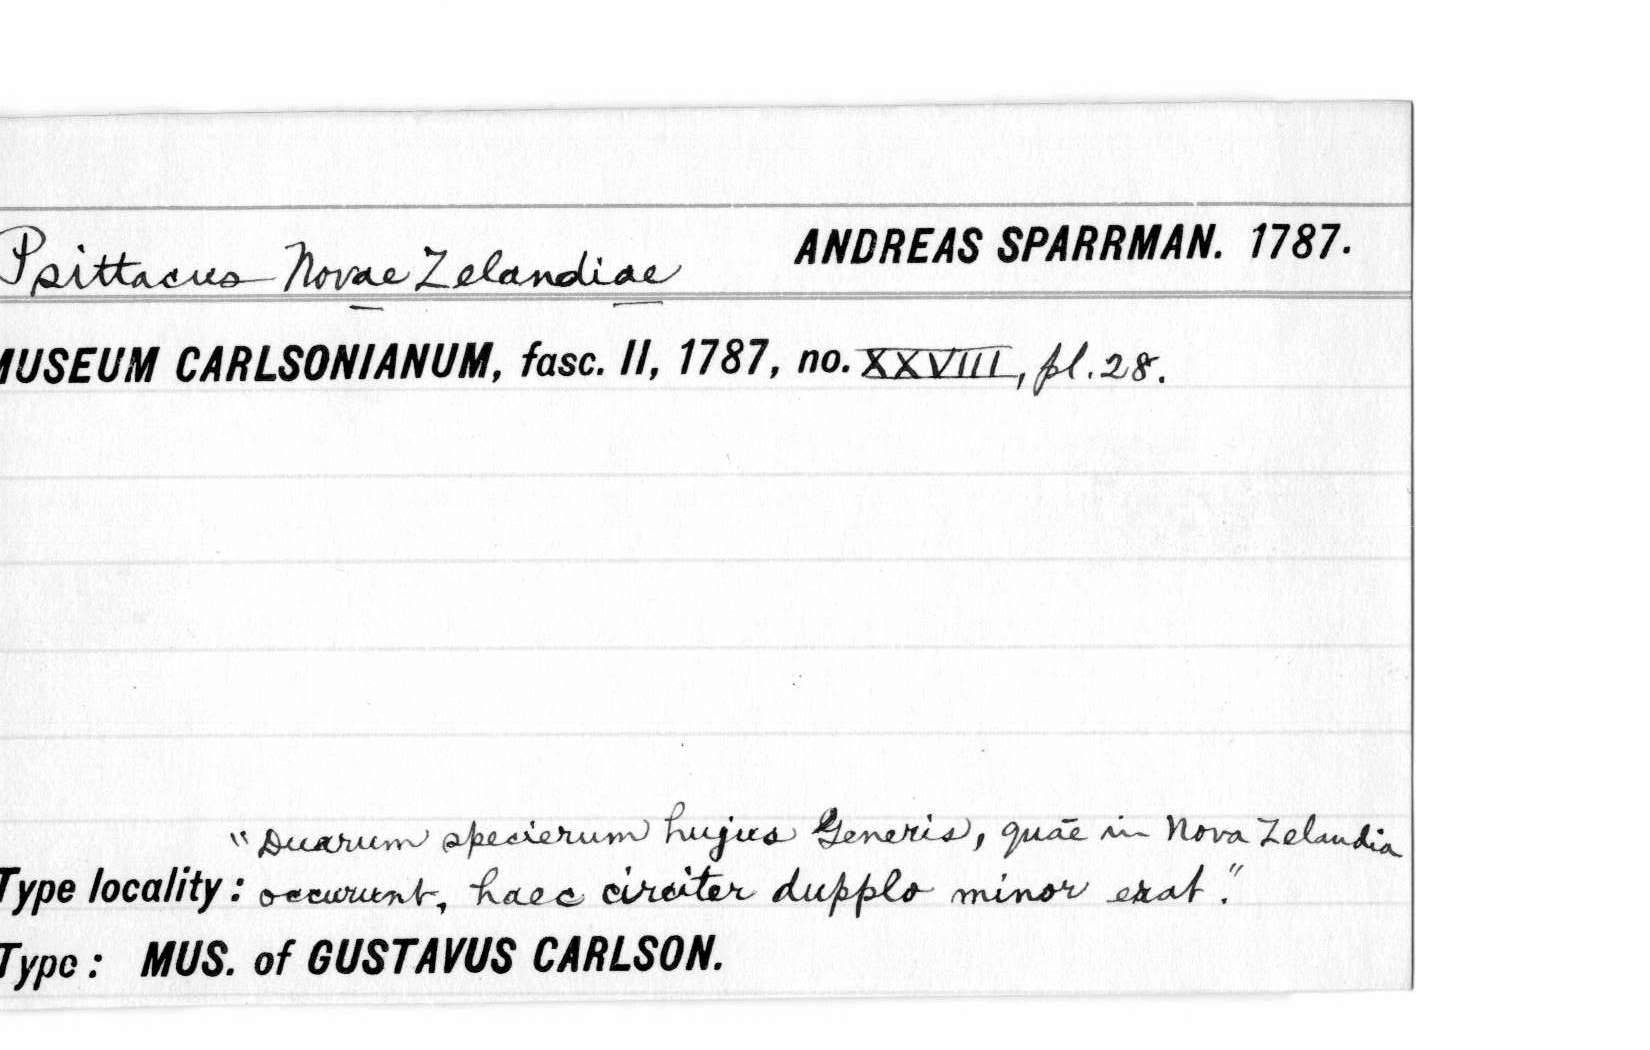 Psittacus Novae Zelandiae ANDREAS SPARRMAN. 1787.
MUSEUM CARLSONIANUM, fasc. II, 1787, no. XXVIII, pl. 28.
"Duarum specierum hujus Generis, quae in Nova Zelandia
Type locality: occurunt, haec circiter dupplo minor erat."
Type: MUS. of GUSTAVUS CARLSON.